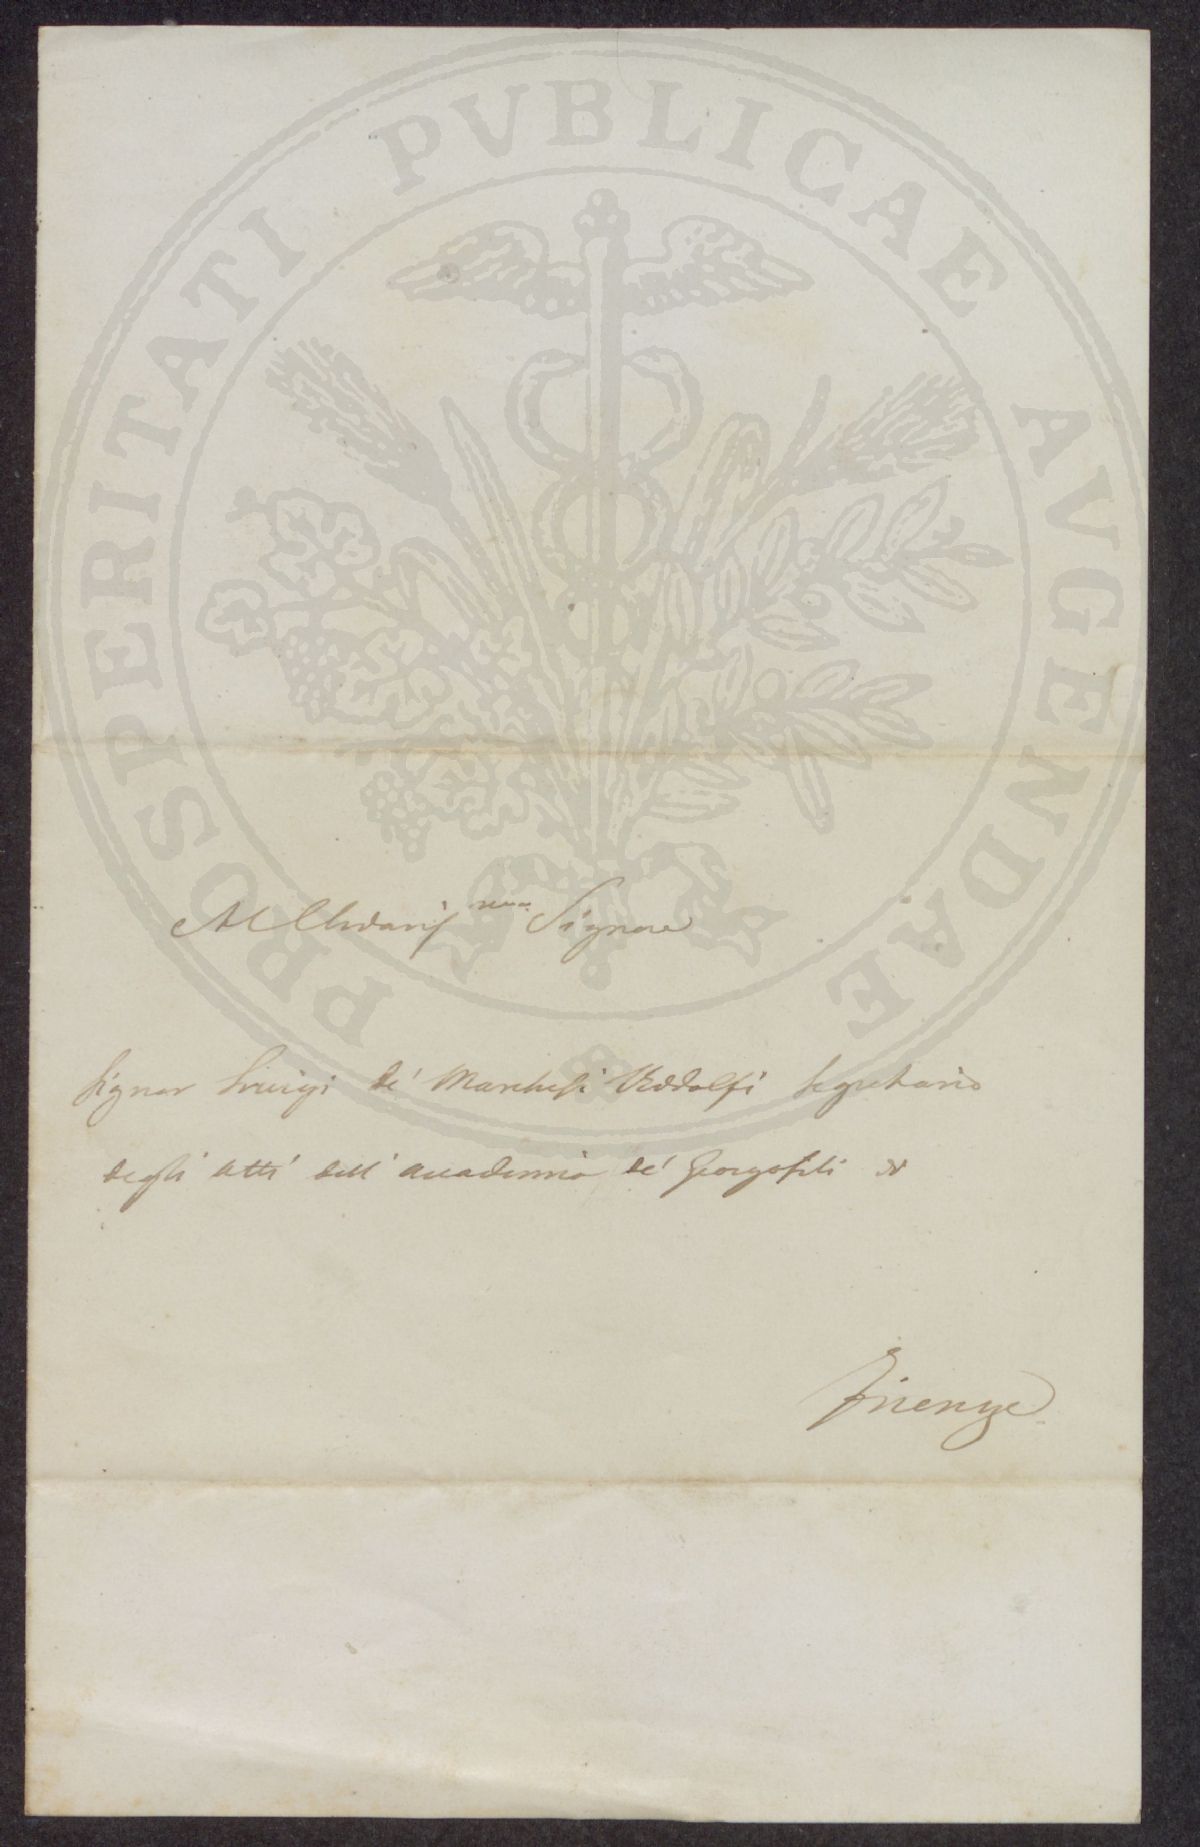 PROSPERITATI PVBLICAE AVGENDAE
Al Chiariss.mo Signore
Signor Luigi de' Marchesi Ridolfi Segretario
degli Atti dell' Accademia de' Georgofili
Firenze